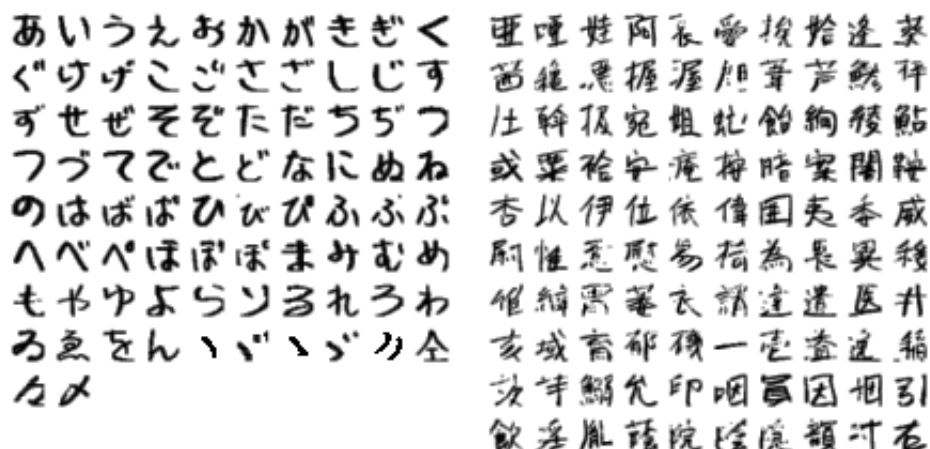 あいうえおかがきぎく
ぐけげこごさざしじす
ずせぜそぞただちぢつ
つづてでとどなにぬね
のはばぱひびぴふぶぷ
へべぺほぼぽまみむめ
もやゆよらりるれろわ
ゐゑをんヽヾゝゞ〃仝
々〆
亜唖娃阿哀愛挨姶逢葵
茜穐悪握渥旭葦芦鯵梓
圧斡扱宛姐虻飴絢綾鮎
或粟袷安庵按暗案闇鞍
杏以伊位依偉囲夷委威
尉惟意慰易椅為畏異移
維緯胃萎衣謂違遺医井
亥域育郁磯一壱溢逸稲
茨芋鰯允印咽員因姻引
飲淫胤蔭院陰隠韻吋右